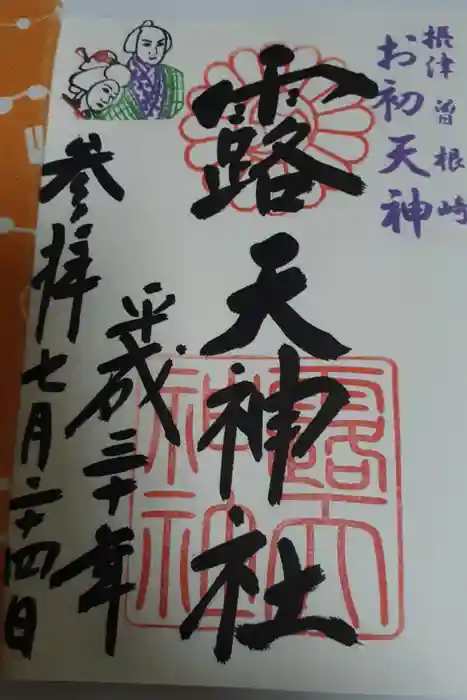 摂津 曽根崎
お初天神
露天神社
平成三十年
参拝 七月二十四日
露天
神社